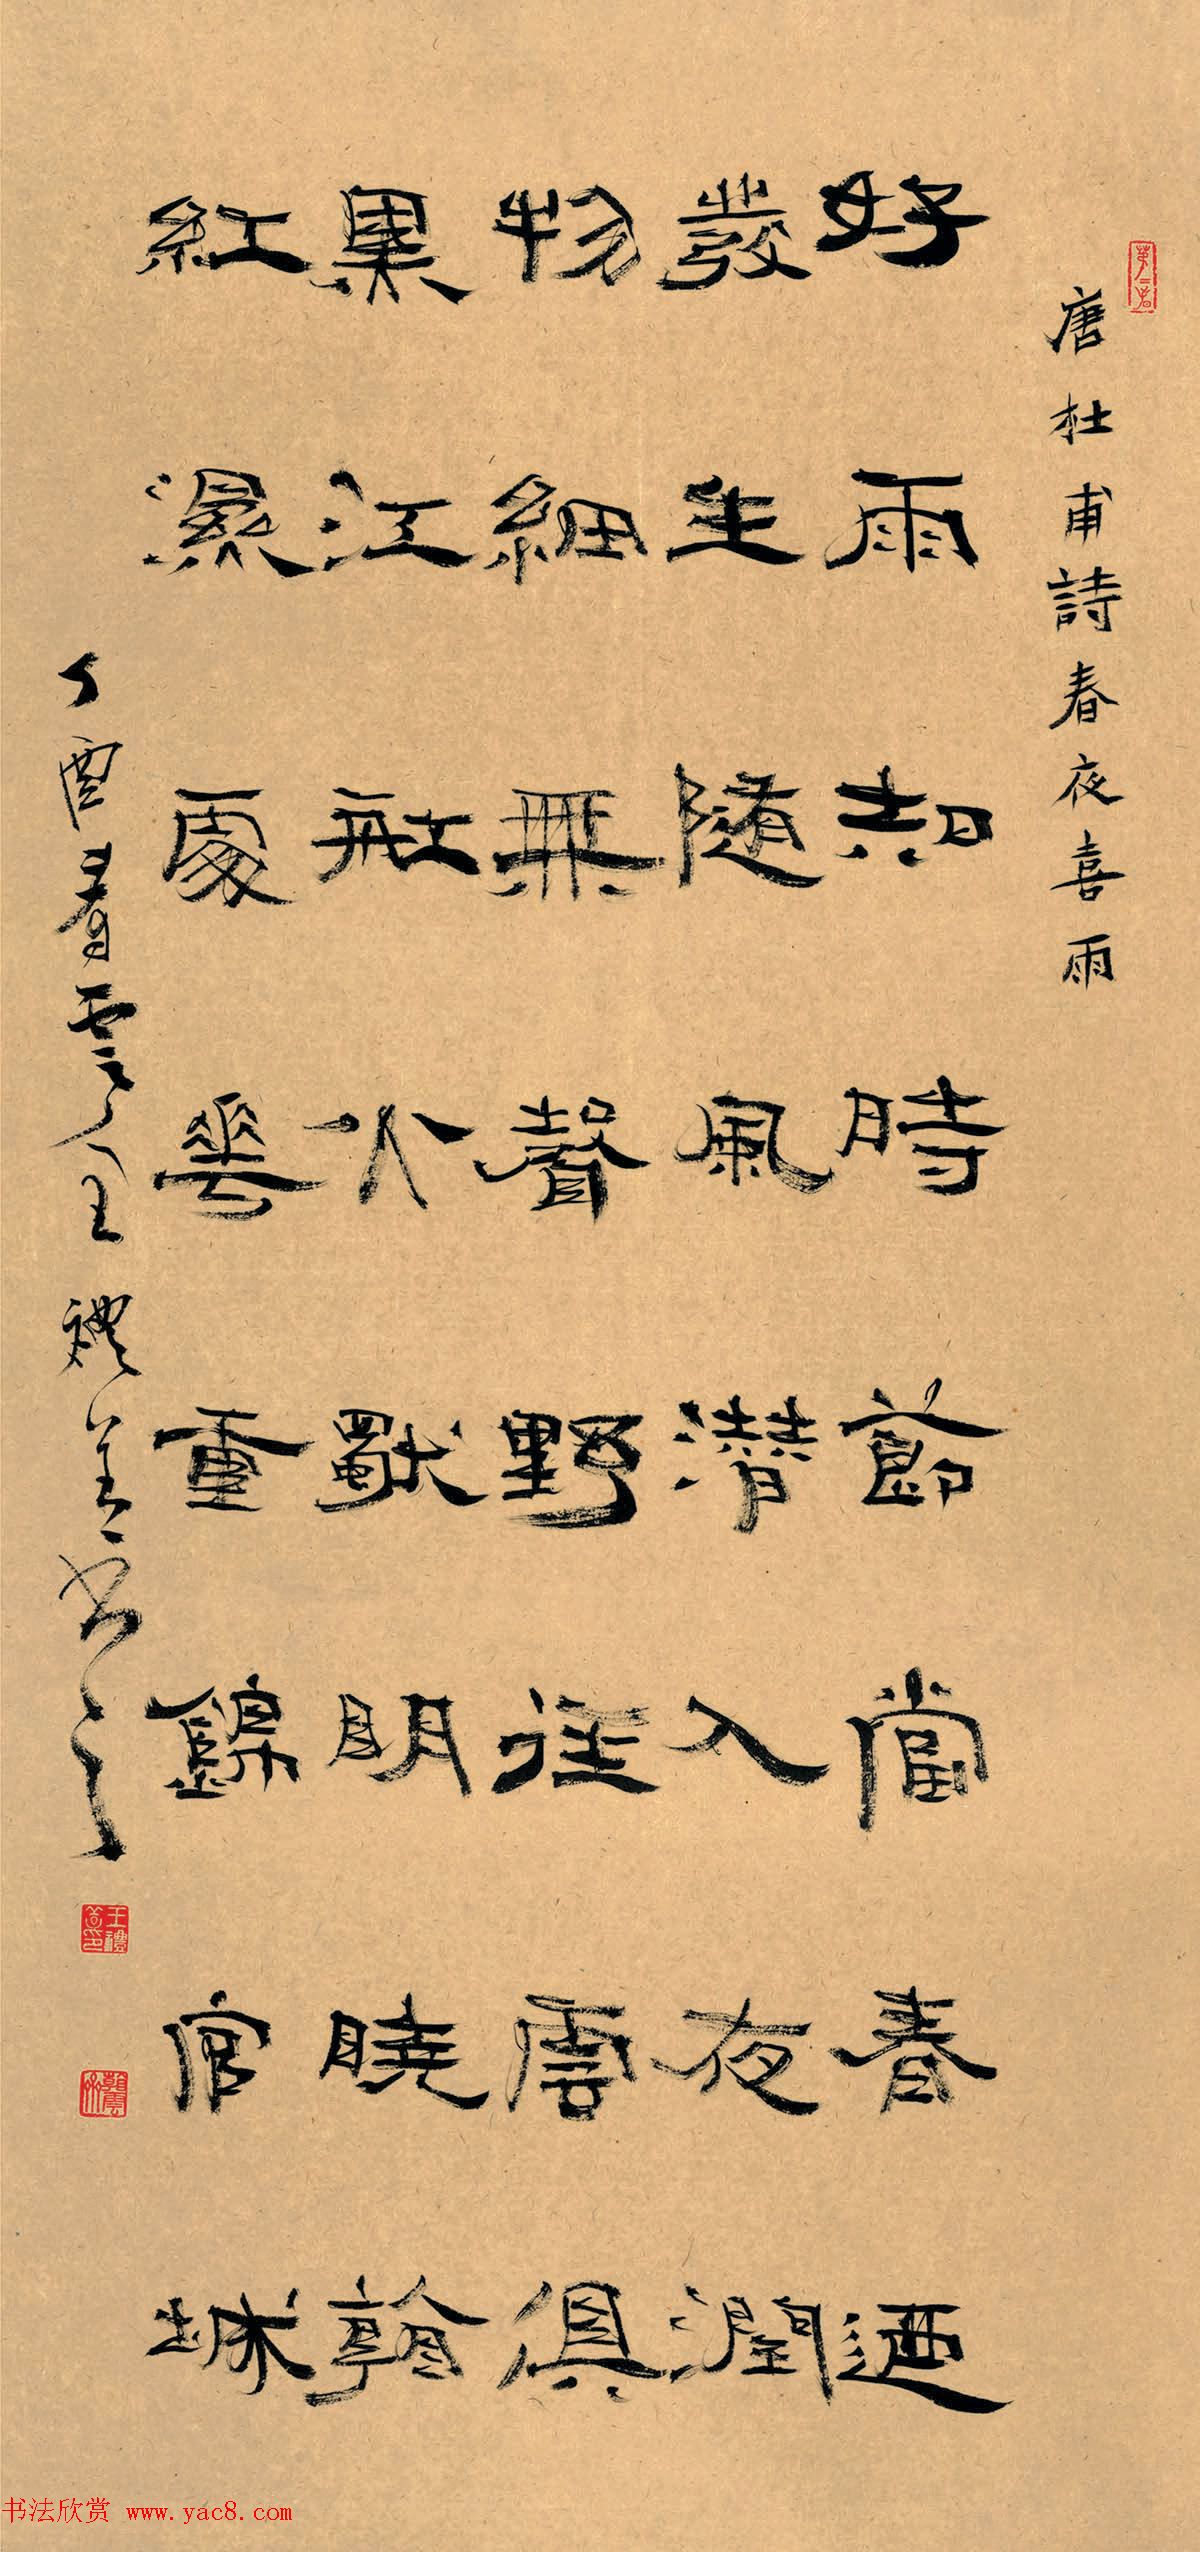 唐杜甫詩春夜喜雨
好雨知時節當春迺
發生隨風潛入夜潤
物細無聲野徑雲俱
黑江船火獨明曉看
紅濕處花重錦官城
丁酉看雲王禮书
王禮印
书法欣赏 www.yac8.com